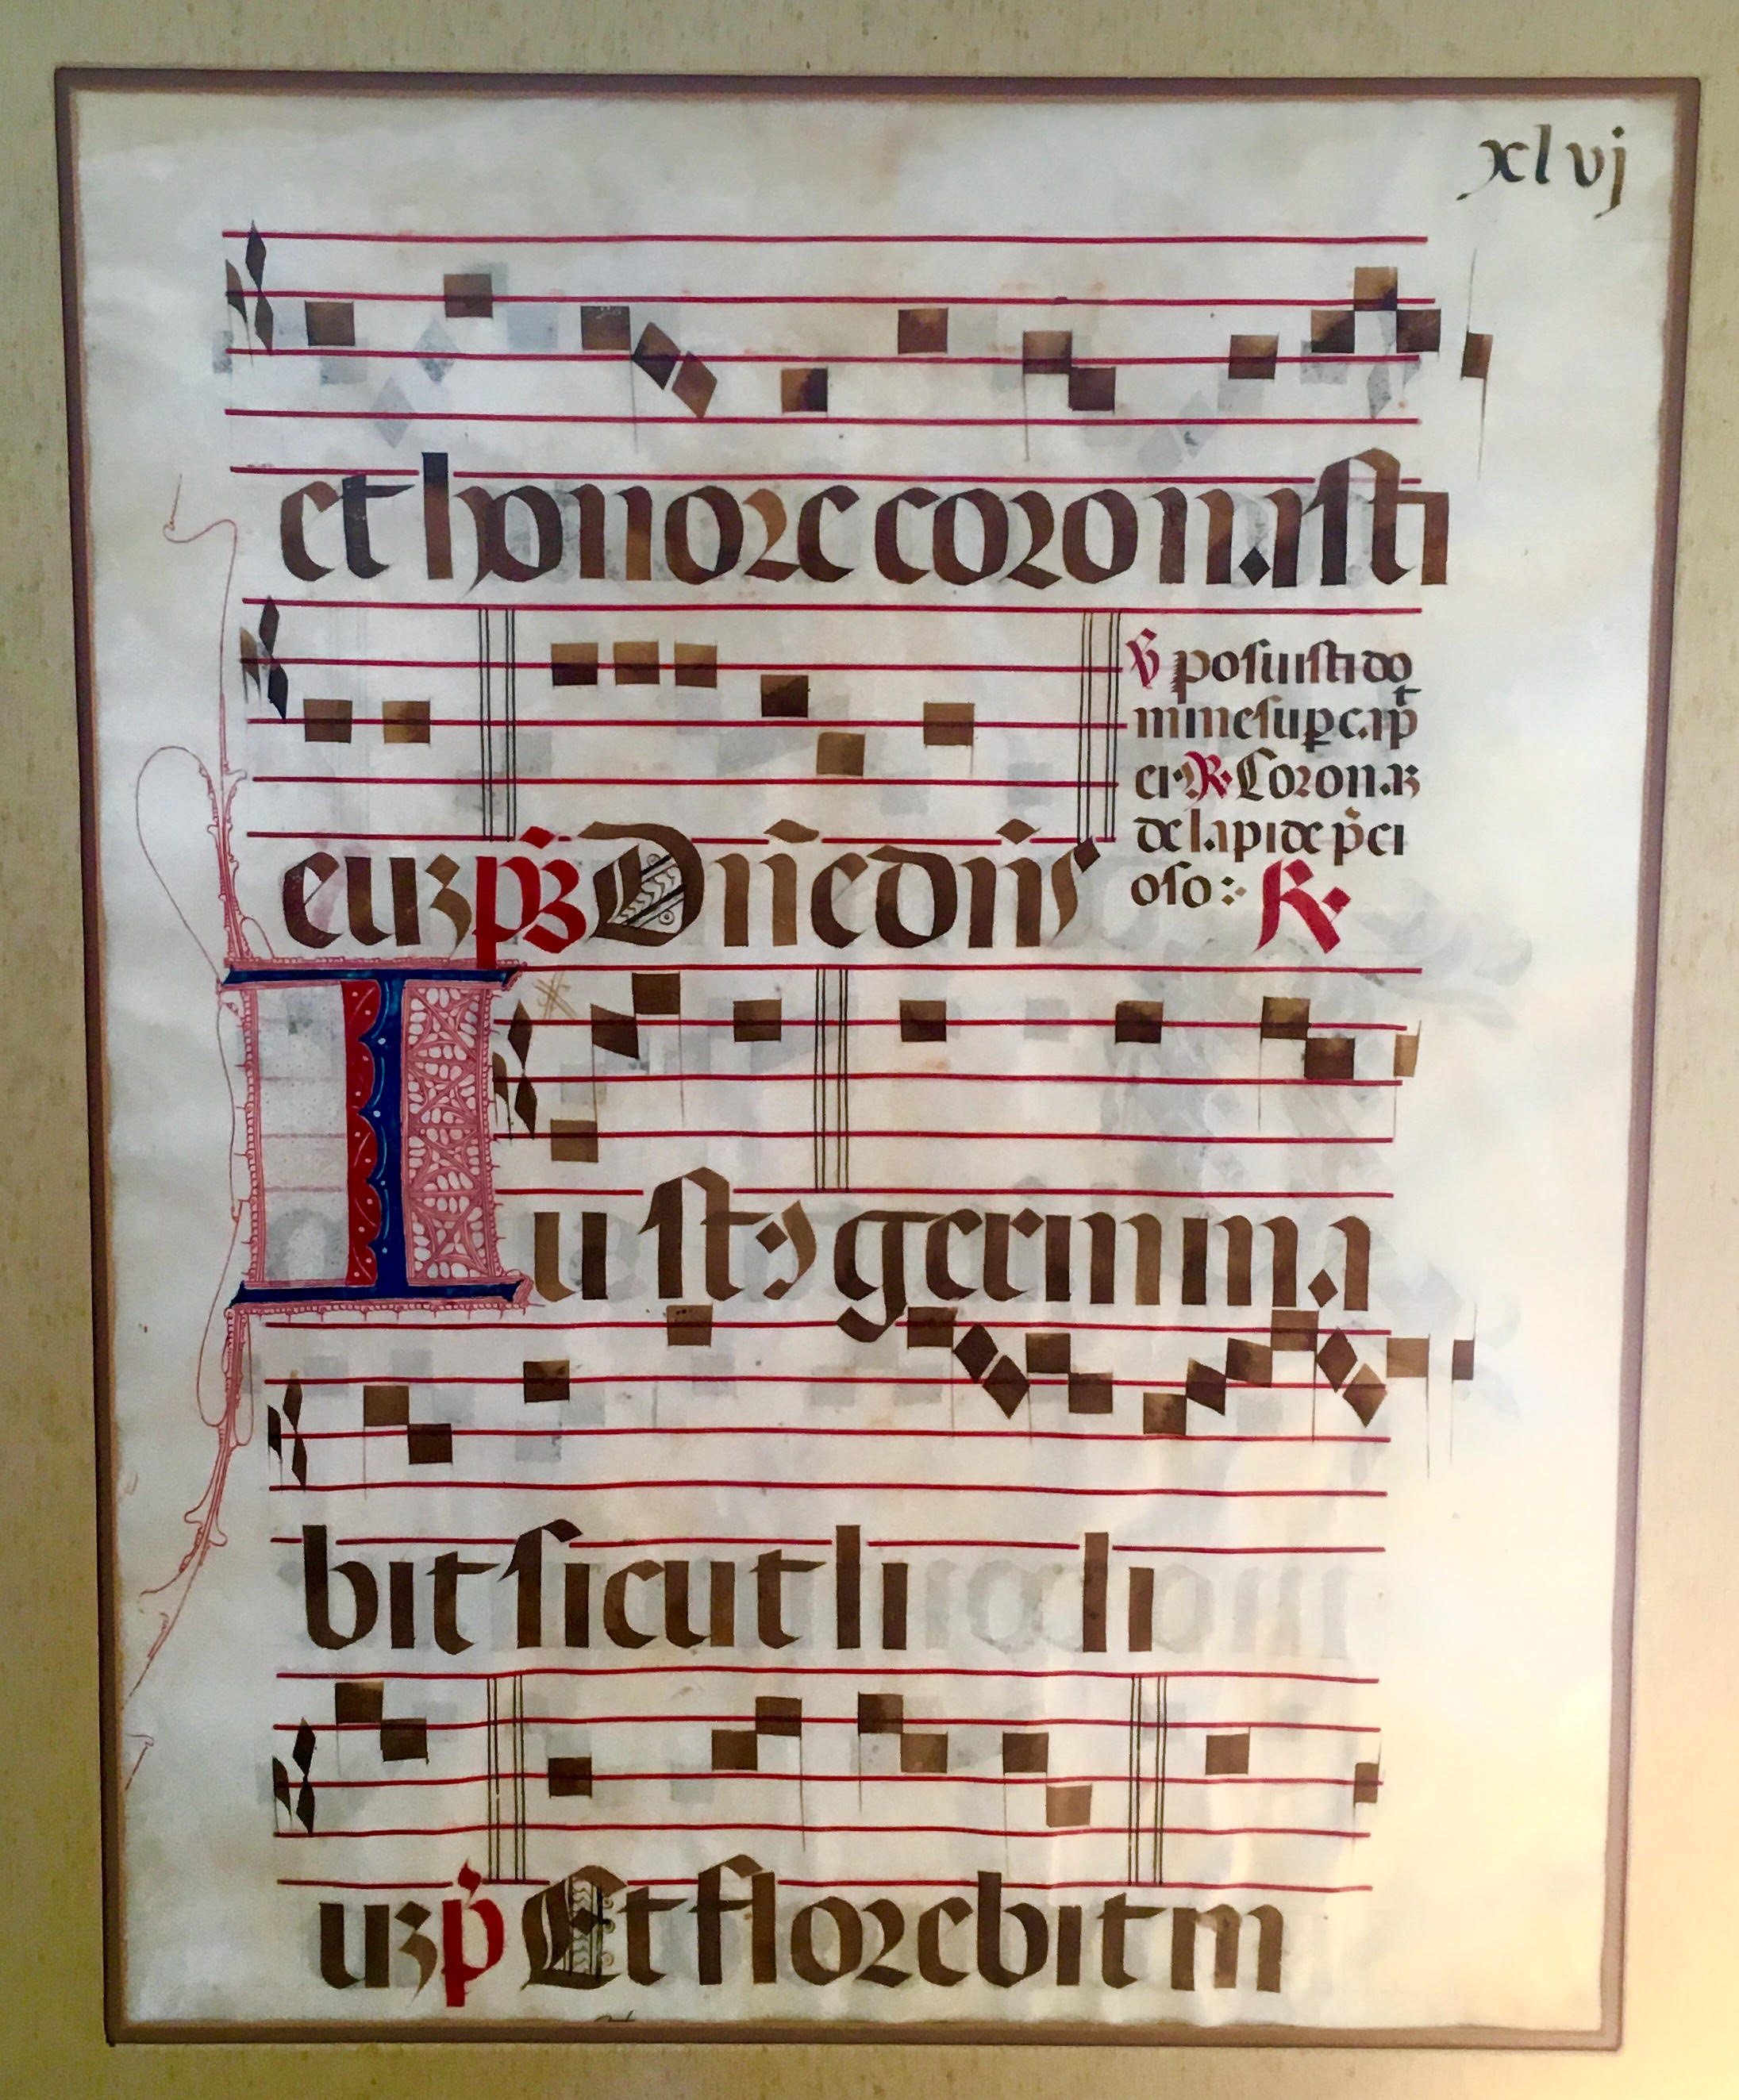 xlvj
et honore coronasti
℣ posuisti do
mine sup capᵗ
ei· ℟· Corona
de lapide p̄ci
oso :· ℟·
eu₃ p̄s Dn̄e dn̄s
Iustꝰ germina
bit sicut lili
u₃ p̄ Et florebit in